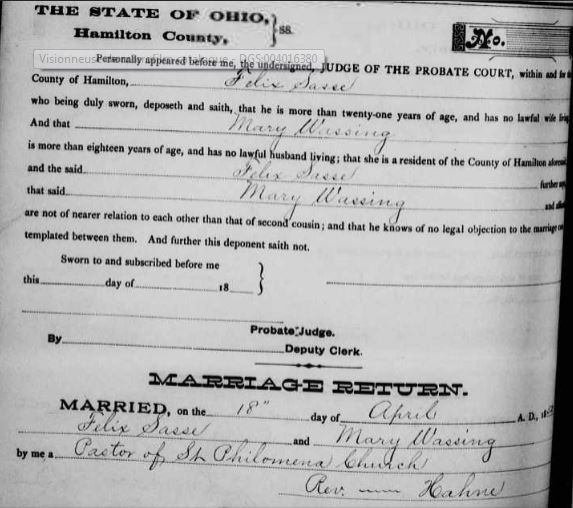 THE STATE OF OHIO, } ss.
Hamilton County,
No.
Visionneuse DGS004016380
Personally appeared before me, the undersigned, JUDGE OF THE PROBATE COURT, within and for
County of Hamilton, Felix Sasse
who being duly sworn, deposeth and saith, that he is more than twenty-one years of age, and has no lawful wife living
And that Mary Wassing
is more than eighteen years of age, and has no lawful husband living; that she is a resident of the County of Hamilton aforesaid
and the said Felix Sasse further
that said Mary Wassing and
are not of nearer relation to each other than that of second cousin; and that he knows of no legal objection to the marriage
templated between them. And further this deponent saith not.
Sworn to and subscribed before me
this day of 18 }
Probate Judge.
By Deputy Clerk.
MARRIAGE RETURN.
MARRIED, on the 18" day of April A. D., 18
Felix Sasse and Mary Wassing
by me a Pastor of St Philomena Church
Rev. — Hahne